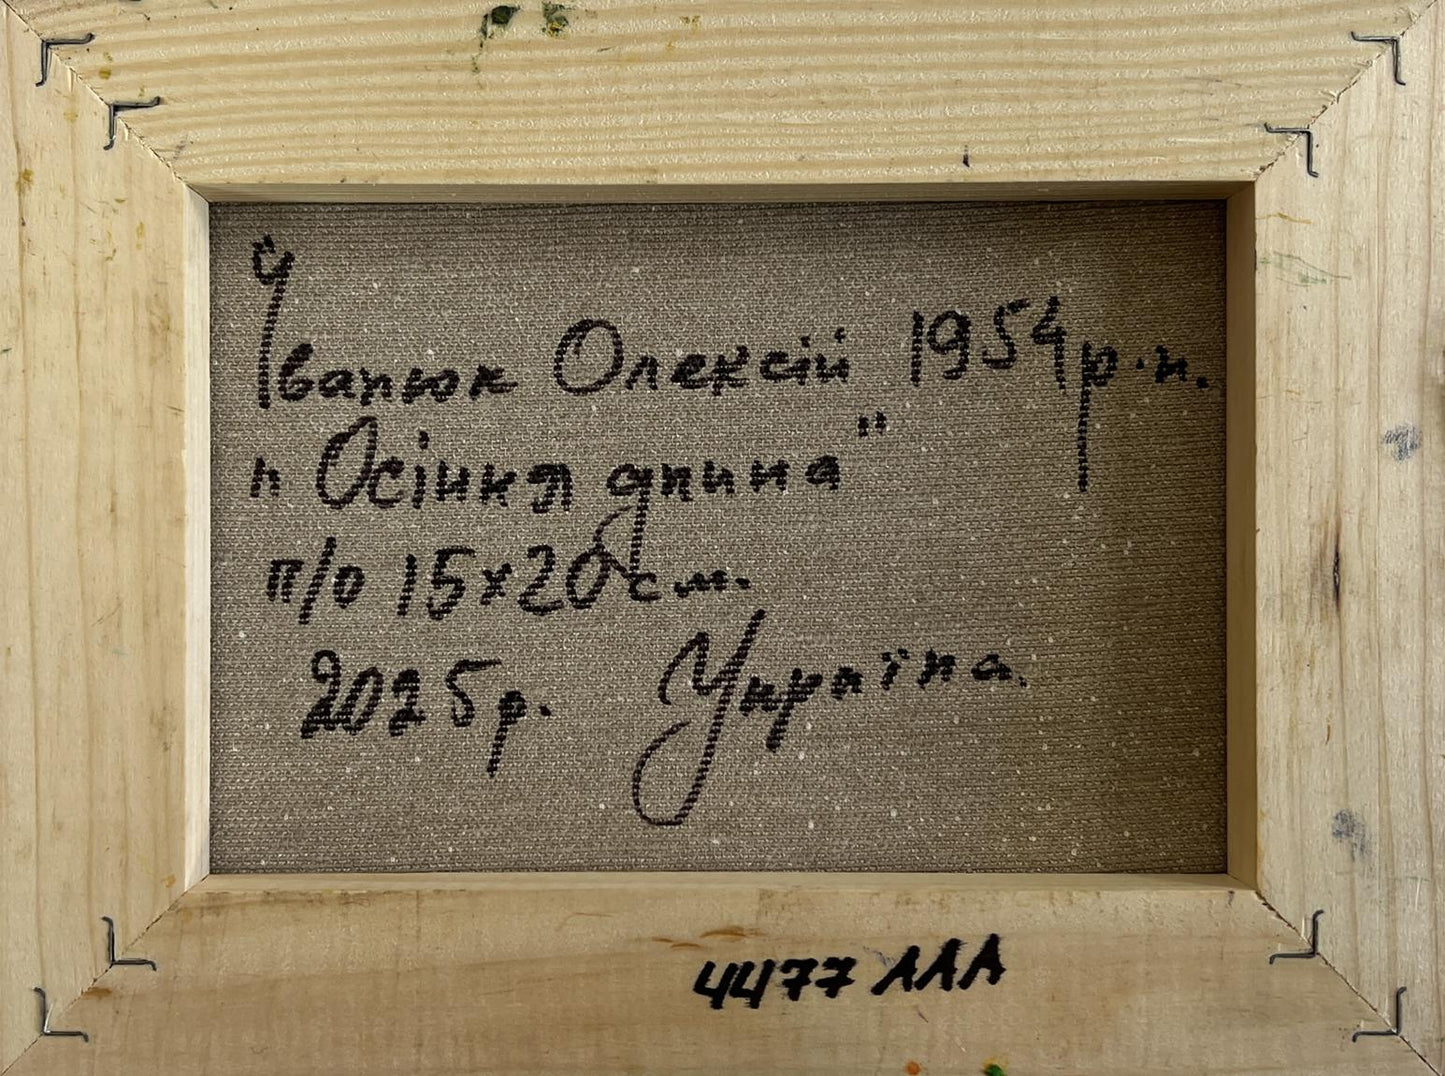 Іванюк Олексій 1954 р.н.
"Осіння днина"
п/о 15х20 см.
2025 р. Україна.
4477 ААА